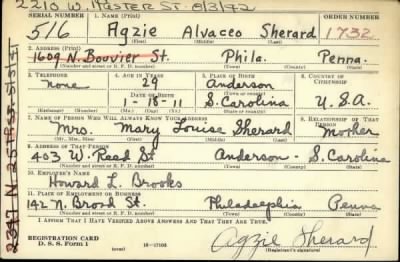 2210 W. Master St. 8/3/42
SERIAL NUMBER 1. NAME (Print) ORDER NUMBER
516 Agzie Alvaceo Sherard 1732
(First) (Middle) (Last)
2. ADDRESS (Print)
1609 N. Bouvier St. Phila. Penna.
(Number and street or R. F. D. number) (Town) (County) (State)
3. TELEPHONE 4. AGE IN YEARS 5. PLACE OF BIRTH 6. COUNTRY OF CITIZENSHIP
None 29 Anderson
DATE OF BIRTH (Town or county)
1-18-11 S. Carolina U.S.A.
(Mo.) (Day) (Yr.) (State or country)
7. NAME OF PERSON WHO WILL ALWAYS KNOW YOUR ADDRESS 8. RELATIONSHIP OF THAT PERSON
Mrs. Mary Louise Sherard Mother
(Mr., Mrs., Miss) (First) (Middle) (Last)
9. ADDRESS OF THAT PERSON
403 W. Reed St Anderson - S. Carolina
(Number and street or R. F. D. number) (Town) (County) (State)
10. EMPLOYER'S NAME
Howard L. Brooks
11. PLACE OF EMPLOYMENT OR BUSINESS
142 N. Broad St. Philadelphia Penna
(Number and street or R. F. D. number) (Town) (County) (State)
I AFFIRM THAT I HAVE VERIFIED ABOVE ANSWERS AND THAT THEY ARE TRUE.
REGISTRATION CARD
D. S. S. Form 1 16-17105 Agzie Sherard
(Registrant's signature)
2347 N.